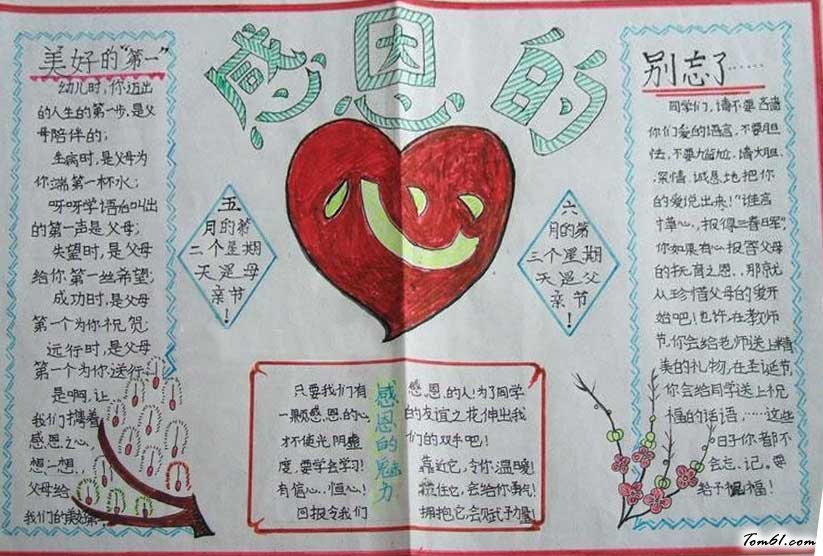 感恩的
心
美好的"第一"
幼儿时,你迈出
的人生的第一步,是父
母陪伴的;
生病时,是父母为
你端第一杯水;
呀呀学语台叫出
的第一声是父母;
失望时,是父母
给你第一丝希望;
成功时,是父母
第一个为你祝贺;
远行时,是父母
第一个为你送行.
是啊,让
我们携着
感恩之心,
想一想,
父母给
我们的美好第一
五
月的第
二个星期
天是母
亲节!
六
月的第
三个星期
天是父
亲节!
感恩的魅力
只要我们有
一颗感恩的心,
才不使光阴虚
度,要学会学习!
有信心、恒心!
回报令我们
感恩的人!为了同学
的友谊之花伸出我
们的双手吧!
靠近它,令你温暖!
搅住它,会给你勇气!
拥抱它,会赋予力量!
别忘了……
同学们,请不要吝啬
你们爱的语言,不要胆
怯,不要尴尬,请大胆、
深情、诚恳地把你
的爱说出来!"谁言
寸草心,报得三春晖",
你如果有心报答父母
的抚育之恩,那就
从珍惜父母的爱开
始吧!也许,在教师
节,你会给老师送上精
美的礼物,在圣诞节
你会给同学送上祝
福的话语,……这些
日子你都不
会忘记。要
给予福!
Tom61.com